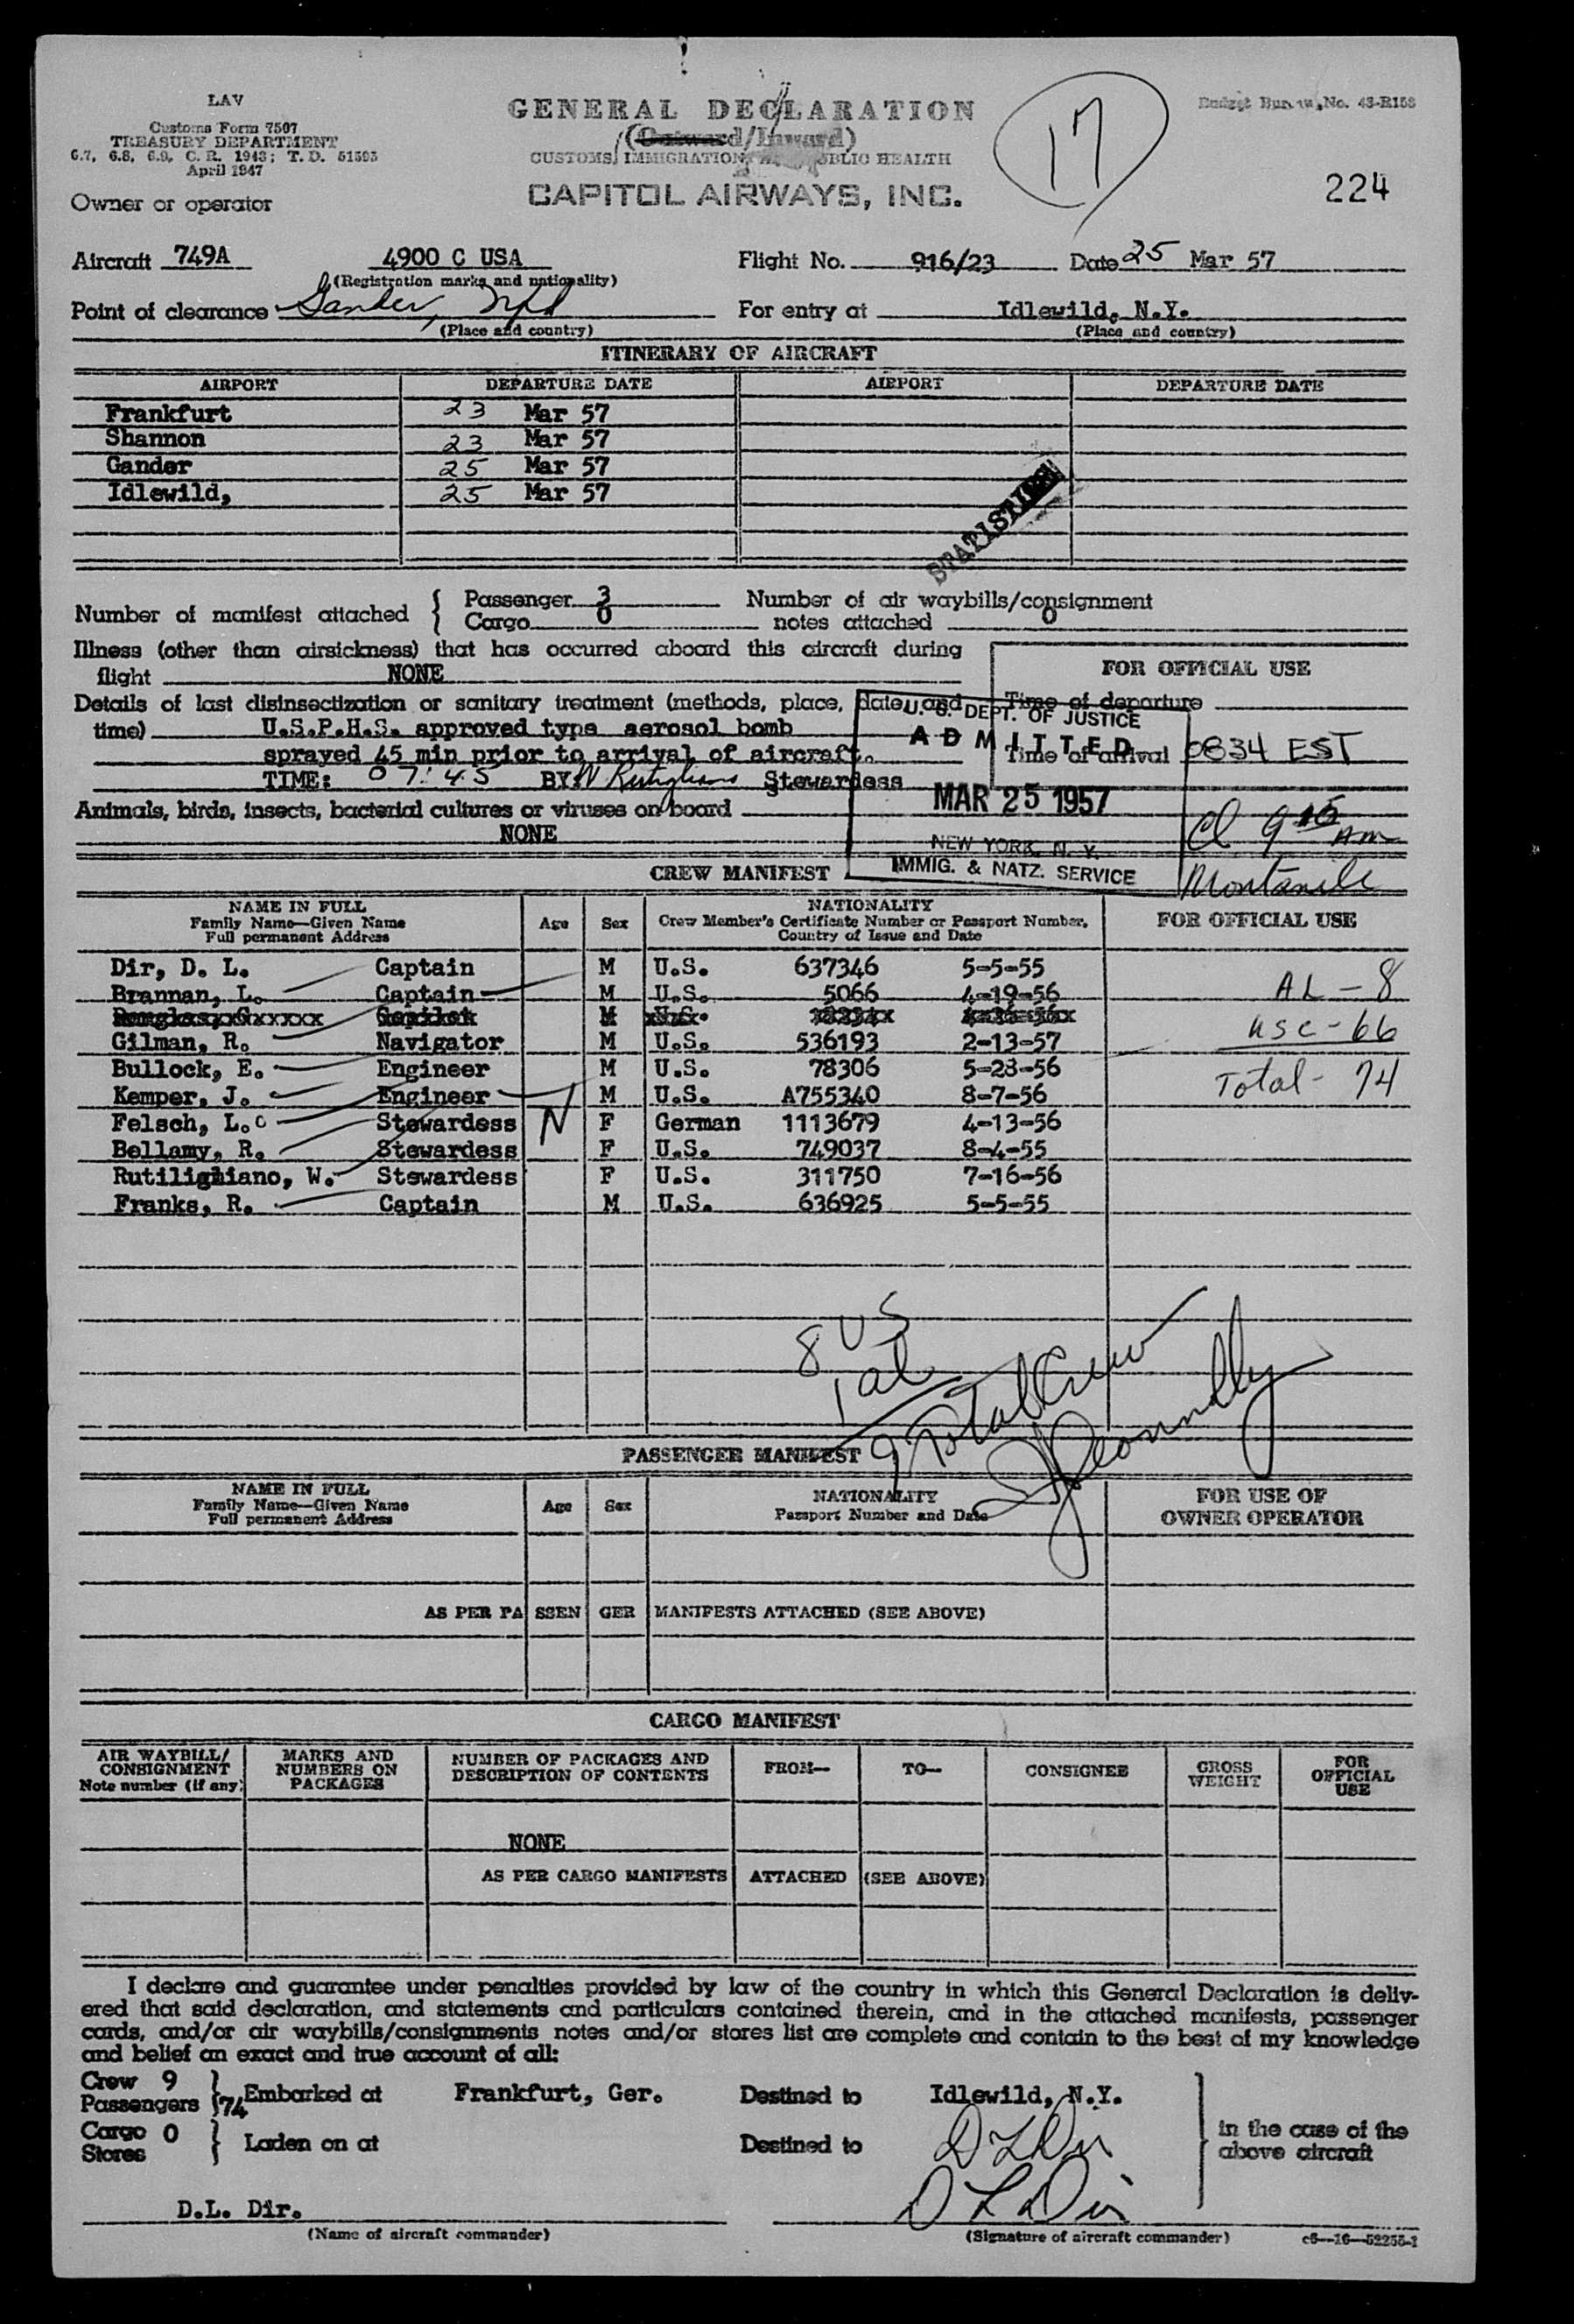 LAV
Customs Form 7507
TREASURY DEPARTMENT
6.7, 6.8, 6.9, C. R. 1943; T. D. 51593
April 1947
GENERAL DECLARATION
(Outward/Inward)
CUSTOMS, IMMIGRATION, PUBLIC HEALTH
CAPITOL AIRWAYS, INC.
17
Budget Bureau No. 43-R158
224
Owner or operator
Aircraft 749A 4900 C USA Flight No. 916/23 Date 25 Mar 57
(Registration marks and nationality)
Point of clearance Gander, Nfld For entry at Idlewild, N.Y.
(Place and country) (Place and country)
ITINERARY OF AIRCRAFT
AIRPORT DEPARTURE DATE AIRPORT DEPARTURE DATE
Frankfurt 23 Mar 57
Shannon 23 Mar 57
Gander 25 Mar 57
Idlewild, 25 Mar 57
Number of manifest attached { Passenger 3 Number of air waybills/consignment
Cargo 0 notes attached 0
Illness (other than airsickness) that has occurred aboard this aircraft during
flight NONE
FOR OFFICIAL USE
Details of last disinsectization or sanitary treatment (methods, place, date, and
time) U.S.P.H.S. approved type aerosol bomb
sprayed 45 min prior to arrival of aircraft.
TIME: 07:45 BY: Stewardess
Time of departure
Time of arrival 0834 EST
U. S. DEPT. OF JUSTICE
ADMITTED
MAR 25 1957
NEW YORK, N. Y.
IMMIG. & NATZ. SERVICE
Animals, birds, insects, bacterial cultures or viruses on board
NONE
CREW MANIFEST
NAME IN FULL
Family Name—Given Name
Full permanent Address
Age Sex
NATIONALITY
Crew Member's Certificate Number or Passport Number,
Country of Issue and Date
FOR OFFICIAL USE
Dir, D. L. Captain M U.S. 637346 5-5-55
Brannan, L. Captain M U.S. 5066 4-19-56
Gilman, R. Navigator M U.S. 536193 2-13-57
Bullock, E. Engineer M U.S. 78306 5-23-56
Kemper, J. Engineer M U.S. A755340 8-7-56
Felsch, L. Stewardess N F German 1113679 4-13-56
Bellamy, R. Stewardess F U.S. 749037 8-4-55
Rutilighiano, W. Stewardess F U.S. 311750 7-16-56
Franks, R. Captain M U.S. 636925 5-5-55
AL - 8
USC - 66
Total - 74
8 US
1 al
9 Total Crew
PASSENGER MANIFEST
NAME IN FULL
Family Name—Given Name
Full permanent Address
Age Sex
NATIONALITY
Passport Number and Date
FOR USE OF
OWNER OPERATOR
AS PER PASSENGER MANIFESTS ATTACHED (SEE ABOVE)
CARGO MANIFEST
AIR WAYBILL/
CONSIGNMENT
Note number (if any)
MARKS AND
NUMBERS ON
PACKAGES
NUMBER OF PACKAGES AND
DESCRIPTION OF CONTENTS
FROM—
TO—
CONSIGNEE
GROSS
WEIGHT
FOR
OFFICIAL
USE
NONE
AS PER CARGO MANIFESTS ATTACHED (SEE ABOVE)
I declare and guarantee under penalties provided by law of the country in which this General Declaration is deliv-
ered that said declaration, and statements and particulars contained therein, and in the attached manifests, passenger
cards, and/or air waybills/consignments notes and/or stores list are complete and contain to the best of my knowledge
and belief an exact and true account of all:
Crew 9
Passengers 74 } Embarked at Frankfurt, Ger. Destined to Idlewild, N.Y.
Cargo 0
Stores } Laden on at Destined to
in the case of the
above aircraft
D L Dir
D.L. Dir. D L Dir
(Name of aircraft commander) (Signature of aircraft commander) c6—16—52255-1